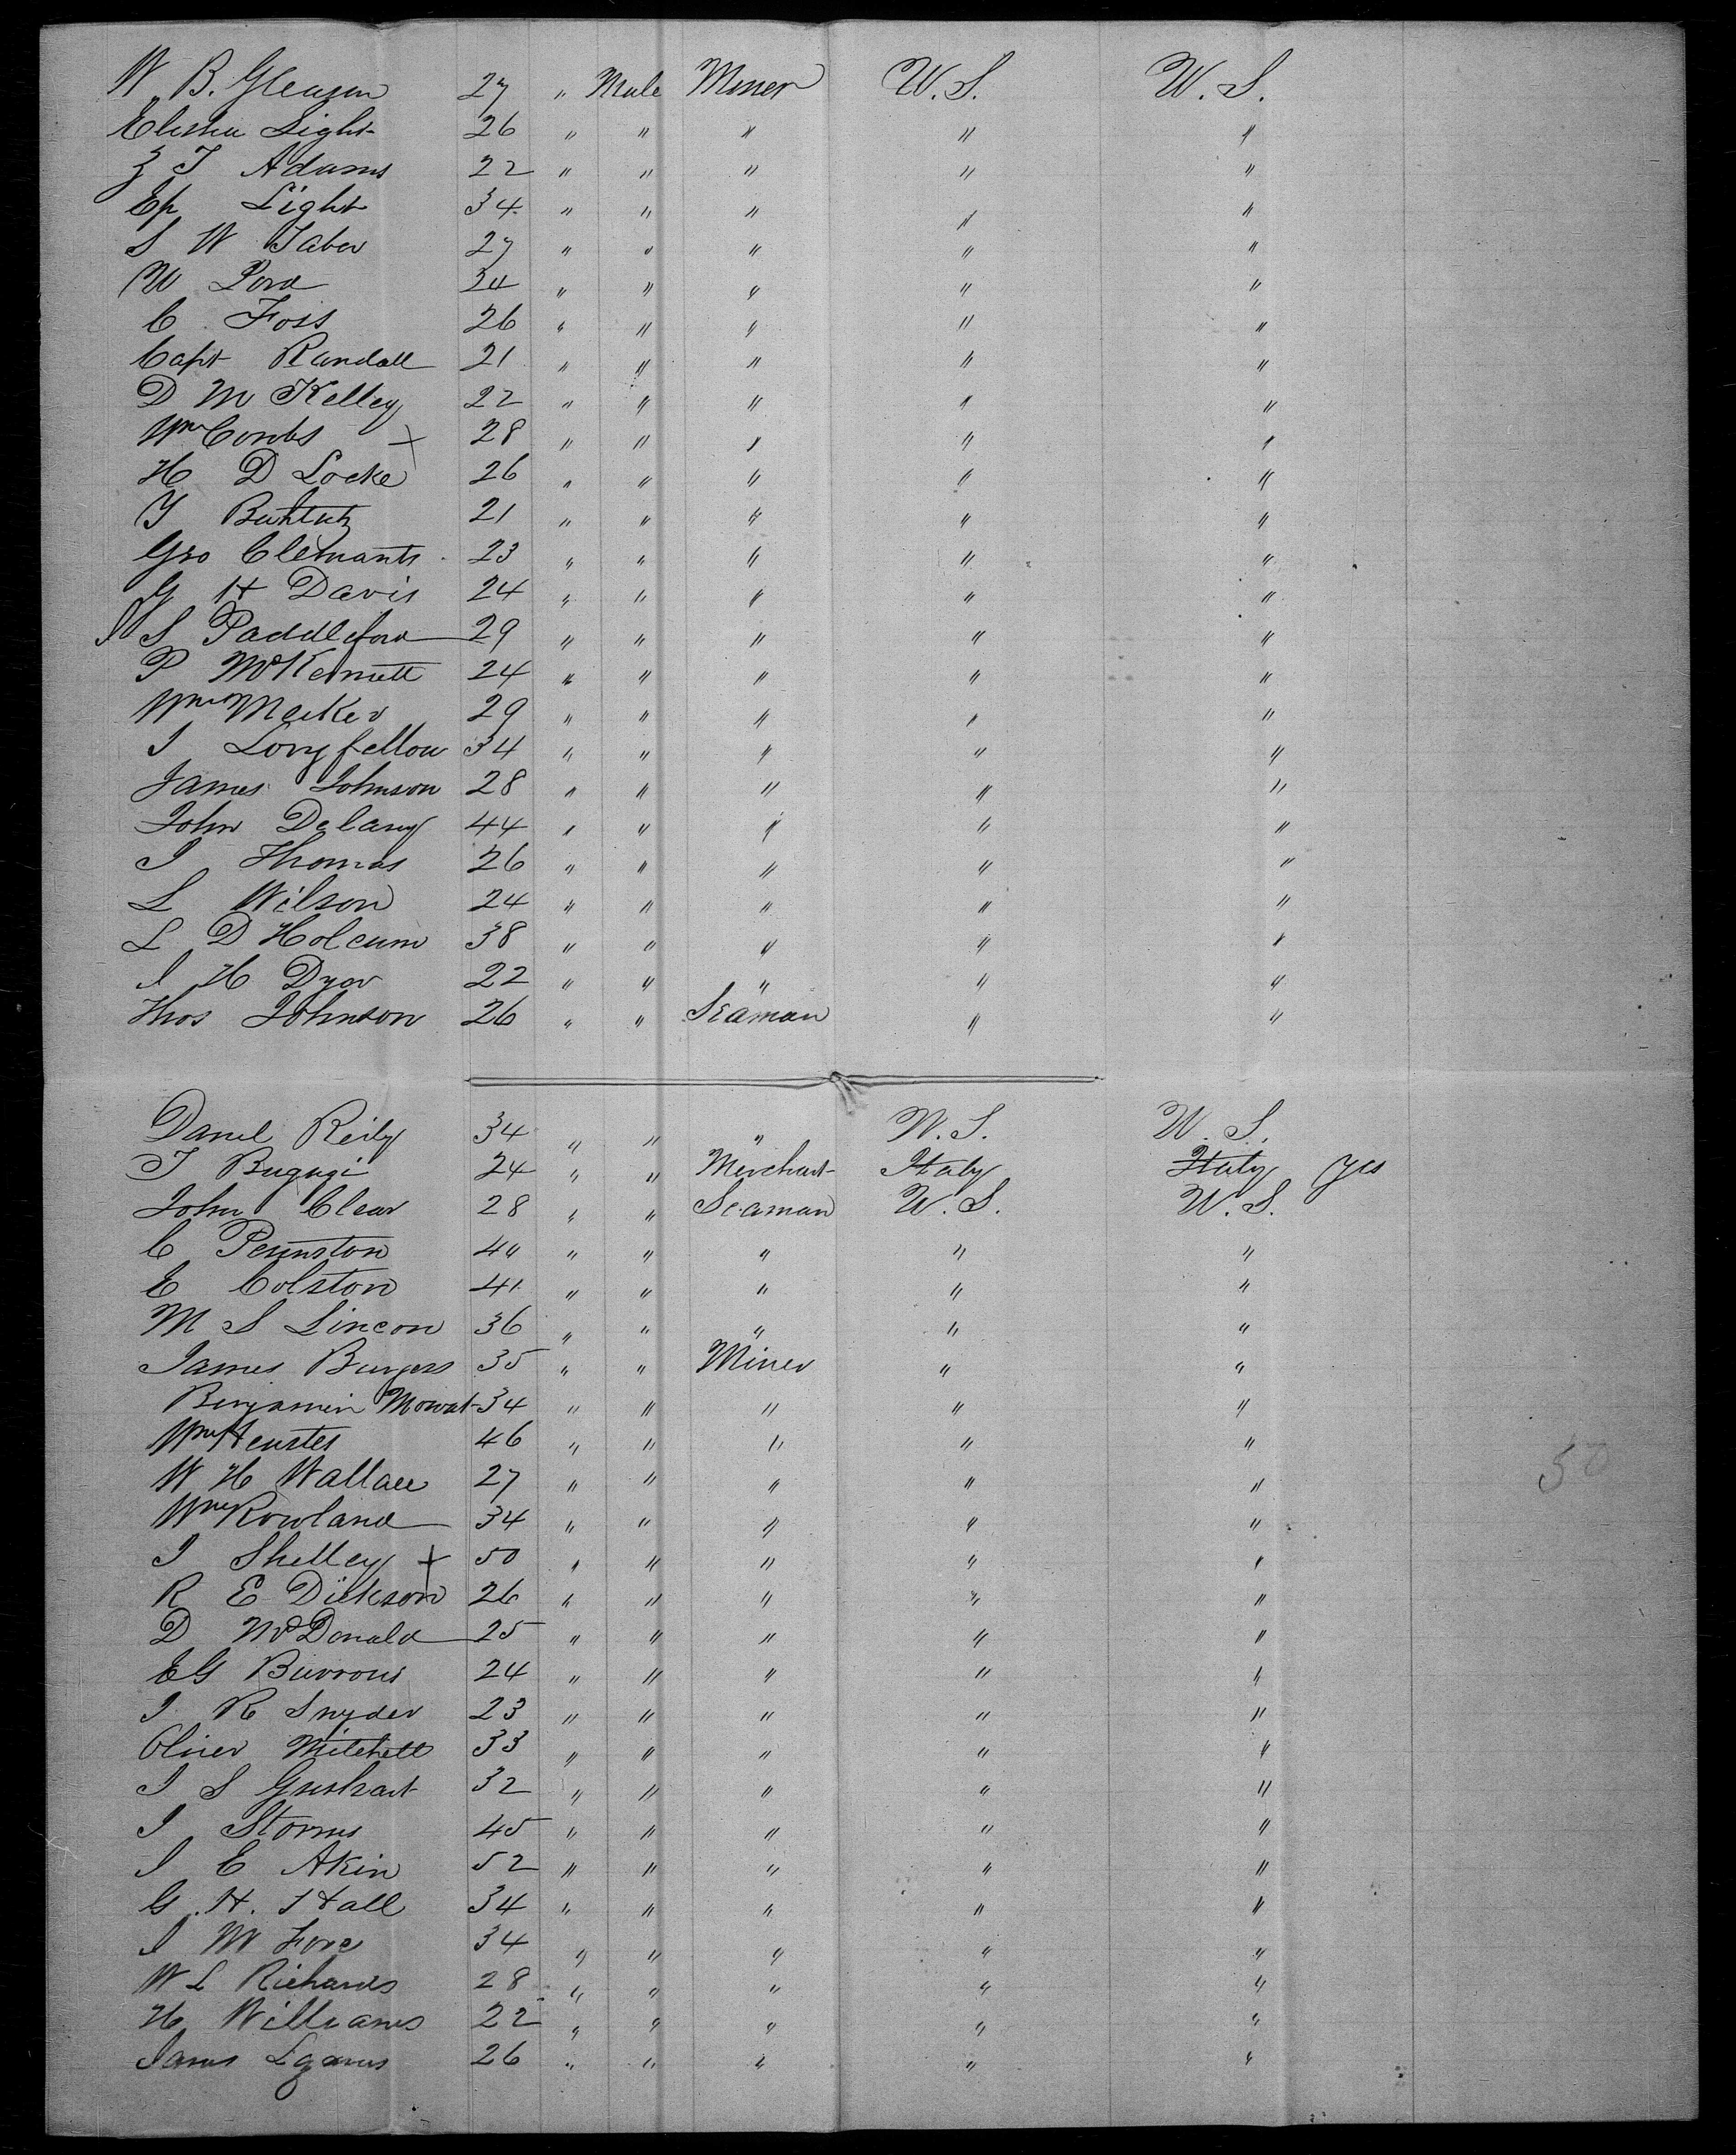 W. B. Gleason 27 " Male Miner U.S. U.S.
Elisha Light 26 " " " " "
Z T Adams 22 " " " " "
Ep Light 34 " " " " "
S W Taber 27 " " " " "
W 34 " " " " "
C Foss 26 " " " " "
Capt Randall 21 " " " " "
D M Kelley 22 " " " " "
Wm Combs + 28 " " " " "
H D Locke 26 " " " " "
21 " " " " "
Geo Clemants 23 " " " " "
G H Davis 24 " " " " "
S Paddleford 29 " " " " "
P 24 " " " " "
Wm Meeker 29 " " " " "
J Longfellow 34 " " " " "
James Johnson 28 " " " " "
John Delany 44 " " " " "
J Thomas 26 " " " " "
L Wilson 24 " " " " "
L D Holcum 38 " " " " "
J H Dyer 22 " " " " "
Thos Johnson 26 " " Seaman " "
Danel Reily 34 " " " U.S. U.S.
J 24 " " Merchant Italy Italy yes
John Clear 28 " " Seaman U.S. U.S.
C Pennston 40 " " " " "
E Colston 41 " " " " "
M S Lincon 36 " " " " "
James Burgess 35 " " Miner " "
Benjamin Mowat 34 " " " " "
Wm 46 " " " " "
W H Wallace 27 " " " " "
Wm Rowland 34 " " " " "
J Shelley + 50 " " " " "
R E Dickson 26 " " " " "
D McDonald 25 " " " " "
E G Burrows 24 " " " " "
J R Snyder 23 " " " " "
Oliver Mitchell 33 " " " " "
J S 32 " " " " "
J Storms 45 " " " " "
J E Akin 52 " " " " "
G. H. Hall 34 " " " " "
J M 34 " " " " "
W L Richards 28 " " " " "
H Williams 22 " " " " "
James 26 " " " " "
50